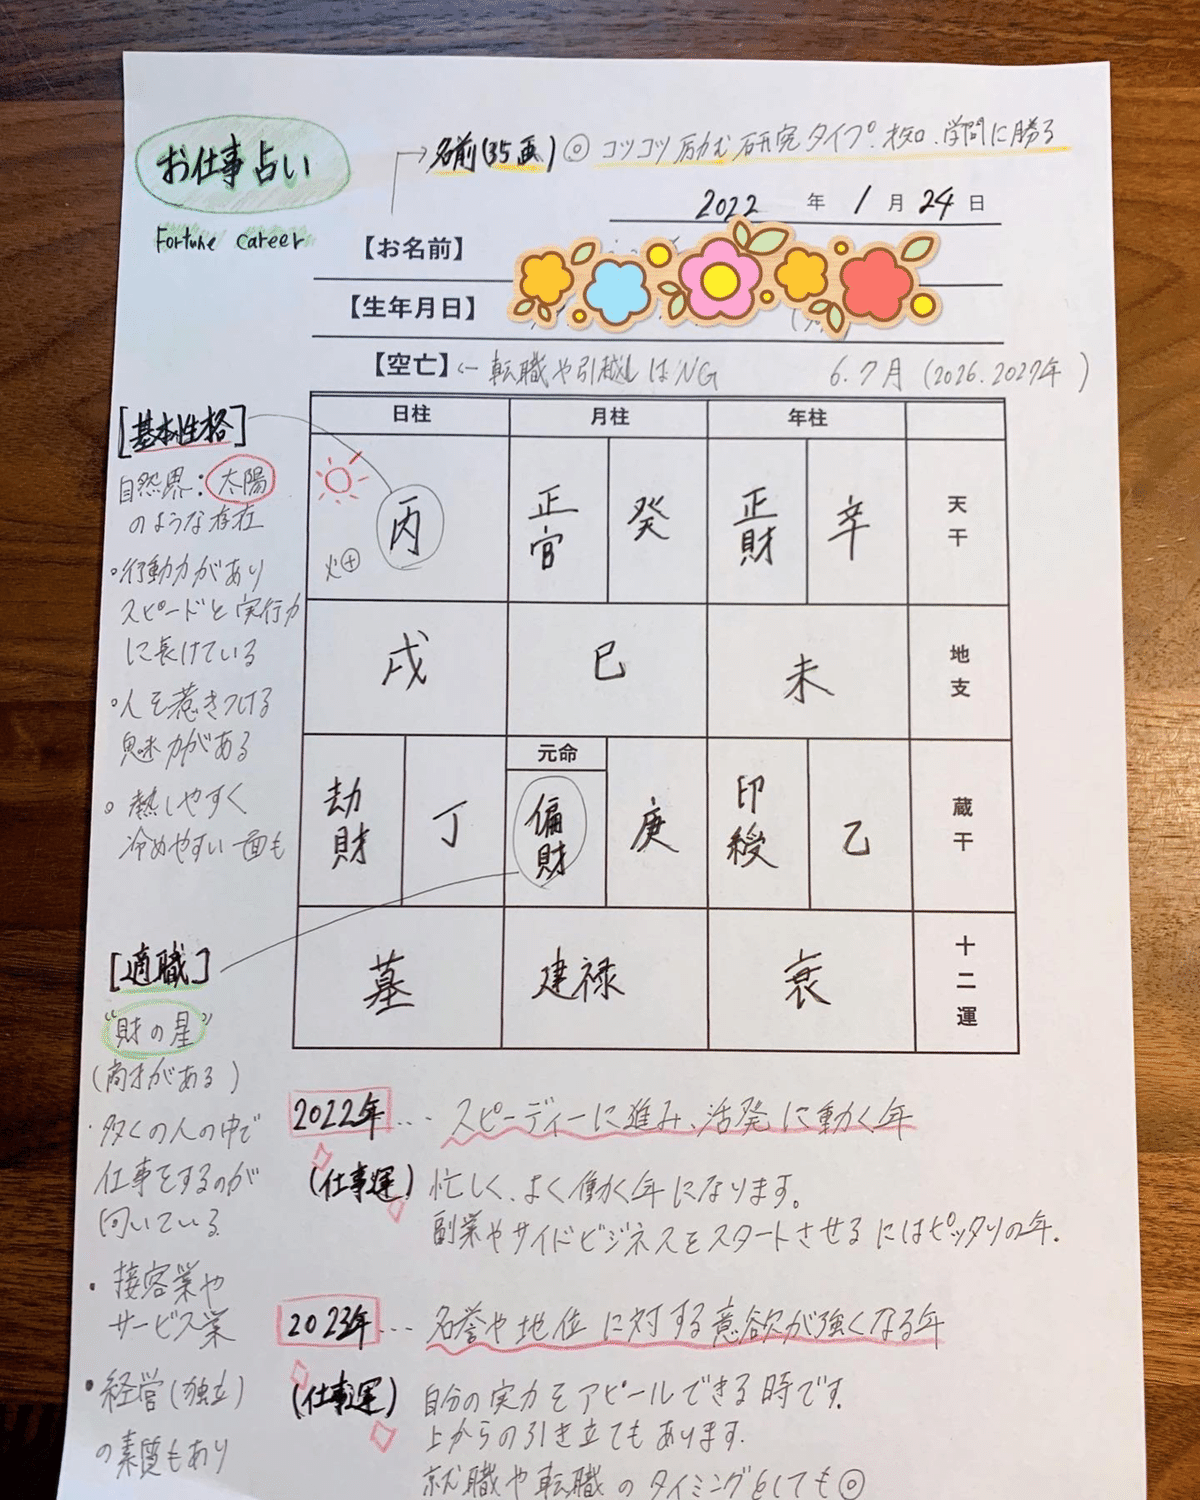 お仕事占い
Fortune career
→ 名前(35画) ◎ コツコツ励む研究タイプ。才知、学問に勝る
2022 年 1 月 24 日
【お名前】
【生年月日】
【空亡】← 転職や引越しはNG 6.7月 (2026.2027年 )
日柱 月柱 年柱
丙 火⊕ 正官 癸 正財 辛 天干
戌 巳 未 地支
元命
劫財 丁 偏財 庚 印綬 乙 蔵干
墓 建禄 衰 十二運
[基本性格]
自然界:太陽
のような存在
・行動力があり
スピードと実行力
に長けている
・人を惹きつける
魅力がある
・熱しやすく
冷めやすい一面も
[適職]
"財の星"
(商才がある)
・多くの人の中で
仕事をするのが
向いている
・接客業や
サービス業
・経営(独立)
の素質もあり
2022年… スピーディーに進み、活発に動く年
(仕事運) 忙しく、よく働く年になります。
副業やサイドビジネスをスタートさせるにはピッタリの年.
2023年… 名誉や地位に対する意欲が強くなる年
(仕事運) 自分の実力をアピールできる時です.
上からの引き立てもあります.
就職や転職のタイミングとしても◎